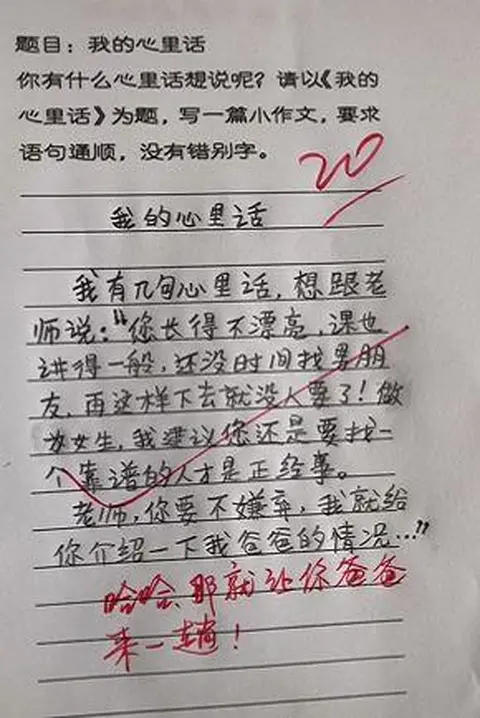 题目：我的心里话
你有什么心里话想说呢？请以《我的
心里话》为题，写一篇小作文，要求
语句通顺，没有错别字。
20
我的心里话
我有几句心里话，想跟老
师说：“您长得不漂亮，课也
讲得一般，还没时间找男朋
友，再这样下去就没人要了！做
为女生，我建议您还是要找一
个靠谱的人才是正经事。
老师，你要不嫌弃，我就给
你介绍一下我爸爸的情况…”
哈哈、那就让你爸爸
来一趟！